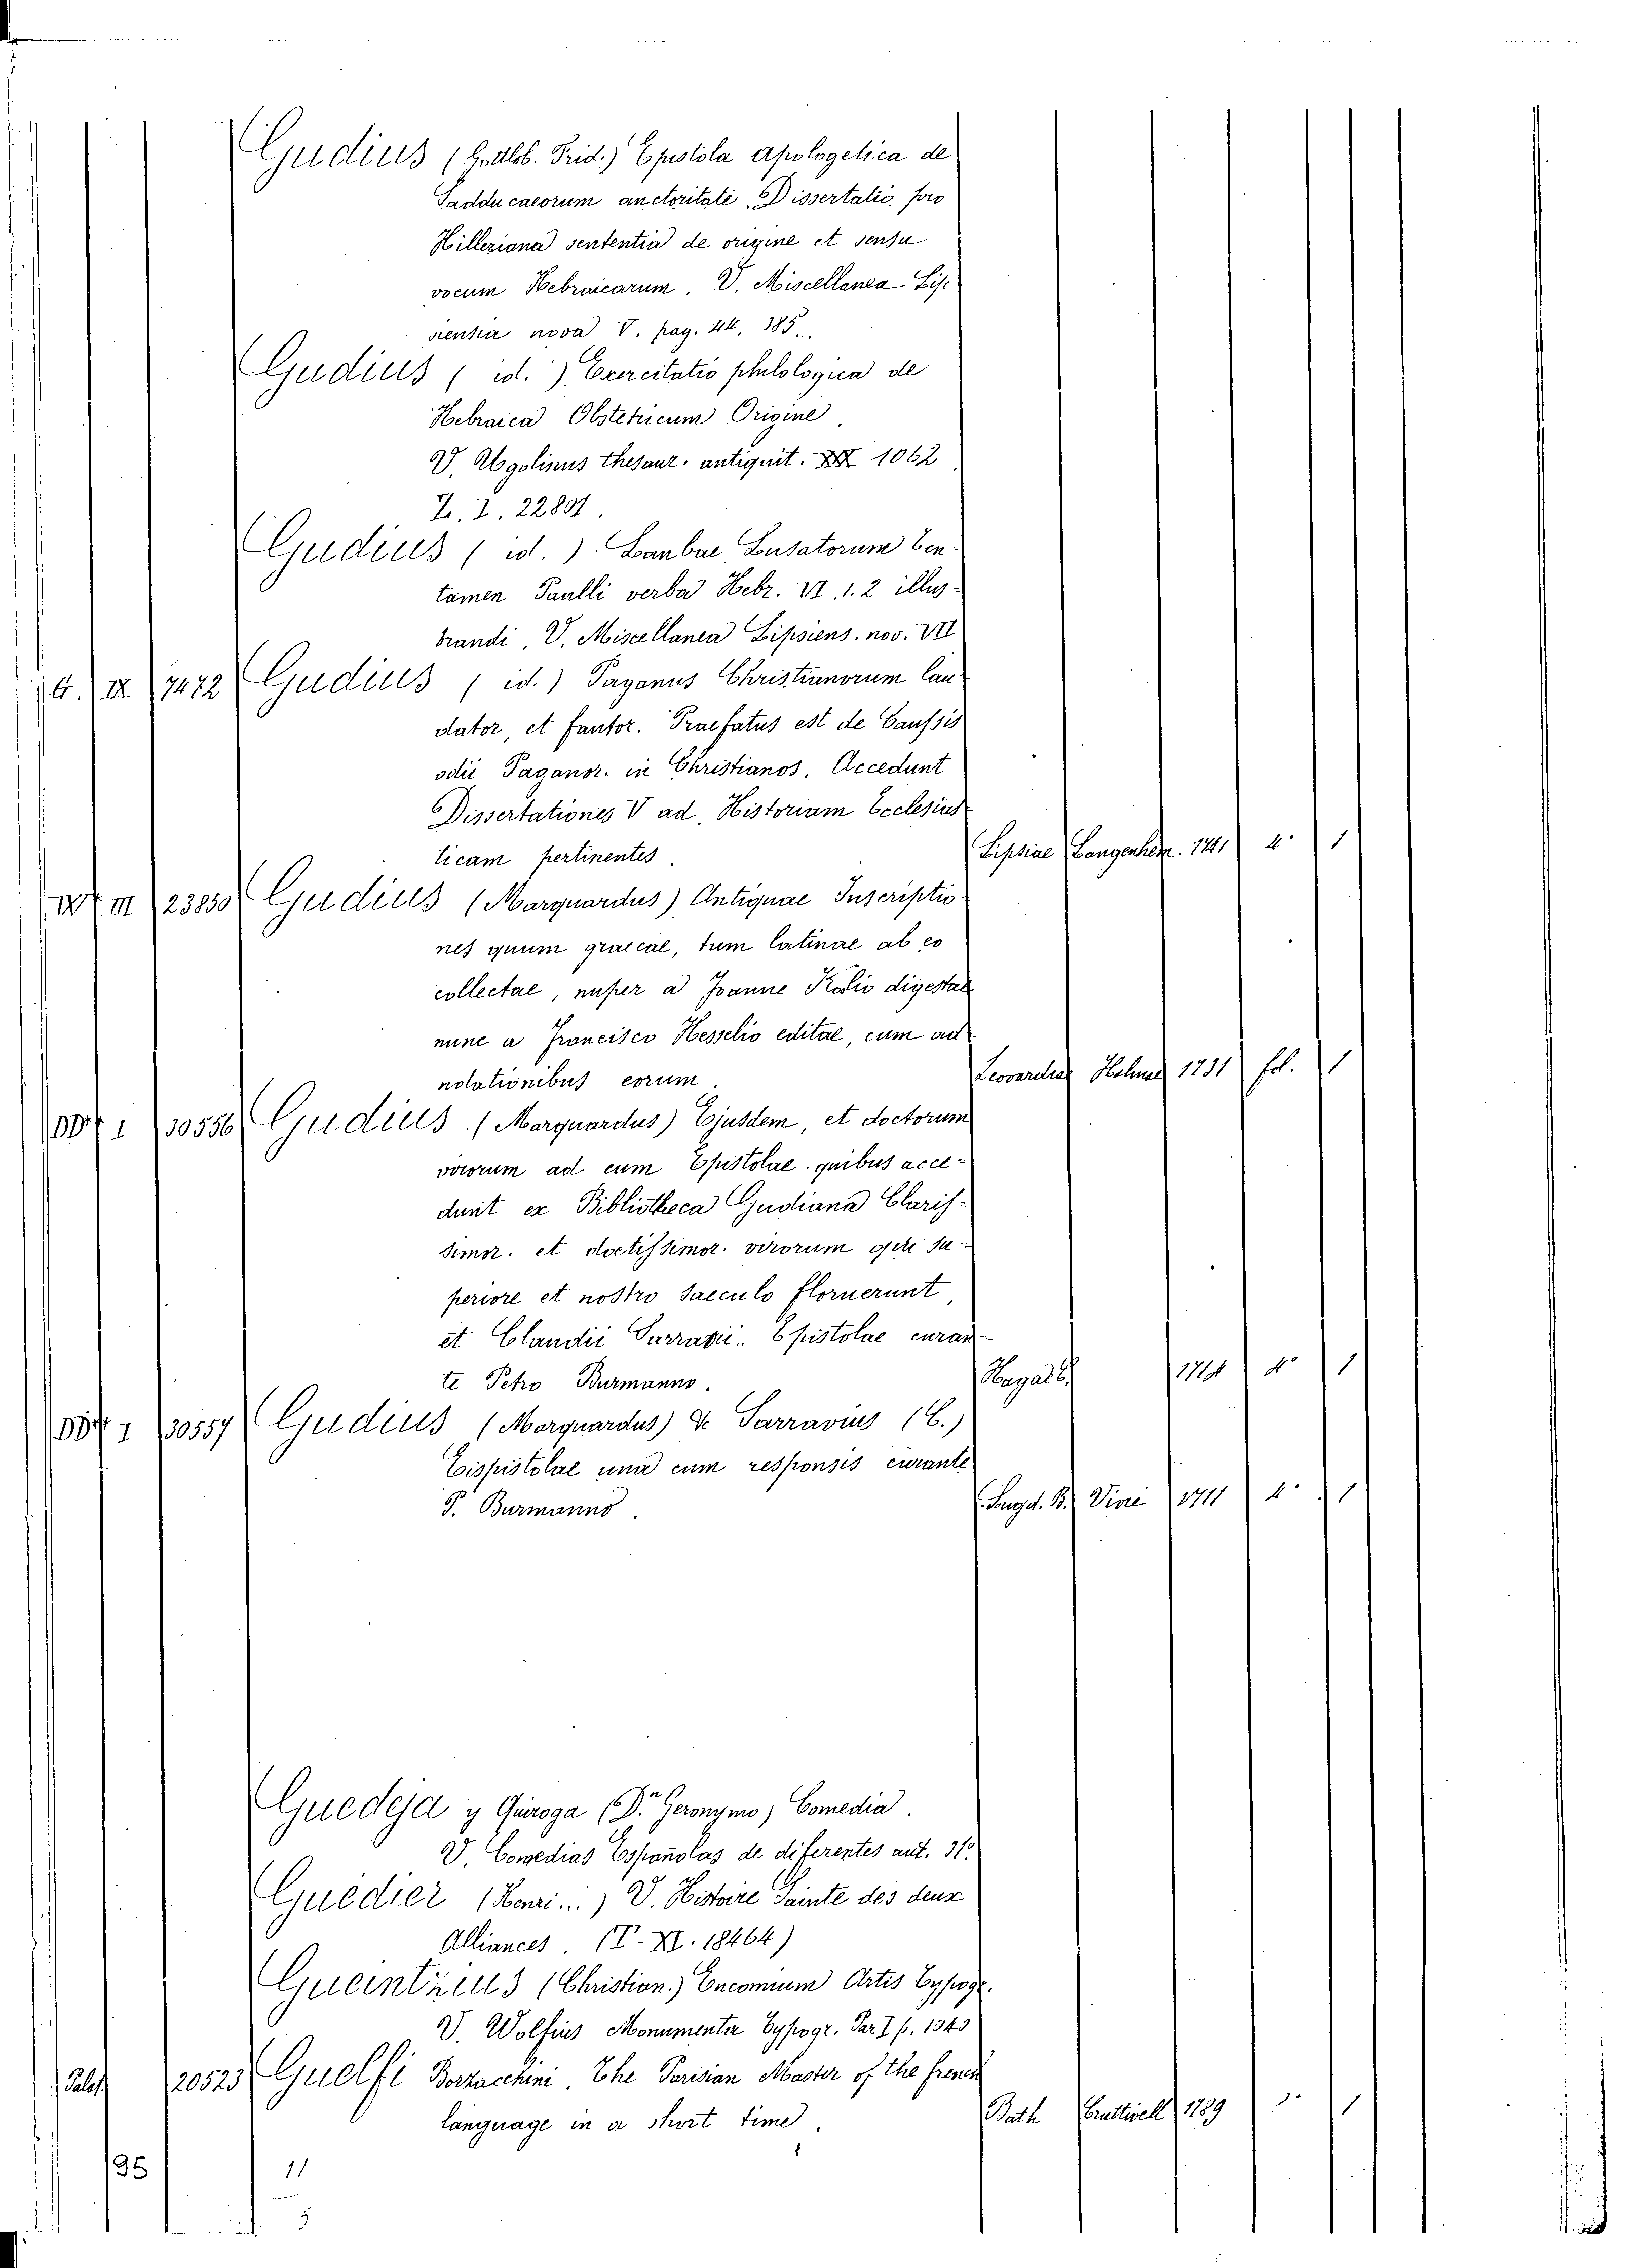 Gudius (Gottlob. Frid.) Epistola Apologetica de
Sadducaeorum auctoritate. Dissertatio pro
Hilleriana sententia de origine et sensu
vocum Hebraicarum. V. Miscellanea Lip
siensia nova V. pag. 44. 385.
Gudius ( id. ). Exercitatio philologica de
Hebraica Obstetricum Origine.
V. Ugolinus thesaur. antiquit. XXX 1062
Z. I. 22801.
Gudius ( id. ). Laubae Lusatorum Ten-
tamen Paulli verba Hebr. VI. 1. 2 illus-
trandi, V. Miscellanea Lipsiens. nov. VII
G. IX 7472 Gudius ( id. ) Paganus Christianorum lau-
dator, et fautor. Praefatus est de Caussis
odii Paganor. in Christianos. Accedunt
Dissertationes V ad. Historiam Ecclesias
ticam pertinentes. Lipsiae Langenhem. 1741 4° 1
W. III 23850 Gudius (Marquardus) Antiquae Inscriptio-
nes quum graecae, tum latinae ab eo
collectae, nuper a Joanne Kolio digestae
nunc a Francisco Hesselio editae, cum ad
notationibus eorum. Leovardiae Halmae 1731 fol. 1
DD. I 30556 Gudius (Marquardus) Ejusdem, et doctorum
virorum ad eum Epistolae. quibus acce-
dunt ex Bibliotheca Gudiana Claris-
simor. et doctissimor. virorum qui su-
periore et nostro saeculo floruerunt,
et Claudii Sarravii.. Epistolae curan-
te Petro Burmanno. Hagae C. 1714 4° 1
DD. I 30557 Gudius (Marquardus) & Sarravius (C.)
Epistolae una cum responsis curante
P. Burmanno. Lugd. B. Vivie 1711 4° 1
Guedeja y Quiroga (Dn. Geronymo) Comedia.
V. Comedias Españolas de diferentes aut. 31°
Guédier (Henri...) V. Histoire Sainte des deux
Alliances. (T. XI. 18464)
Gueintzius (Christian.) Encomium Artis Typogr.
V. Wolfius Monumenta Typogr. Par I p. 1043
Palat. 20523 Guelfi Borzacchini. The Parisian Master of the french
language in a short time. Bath Cruttwell 1789 1
95 11
5